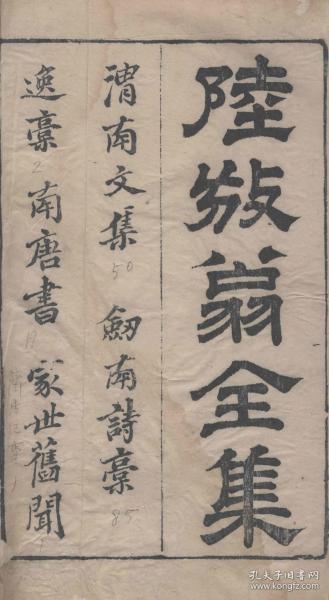 陸放翁全集
渭南文集 50 劒南詩稾 85
逸稾 2 南唐書 家世舊聞
孔夫子旧书网